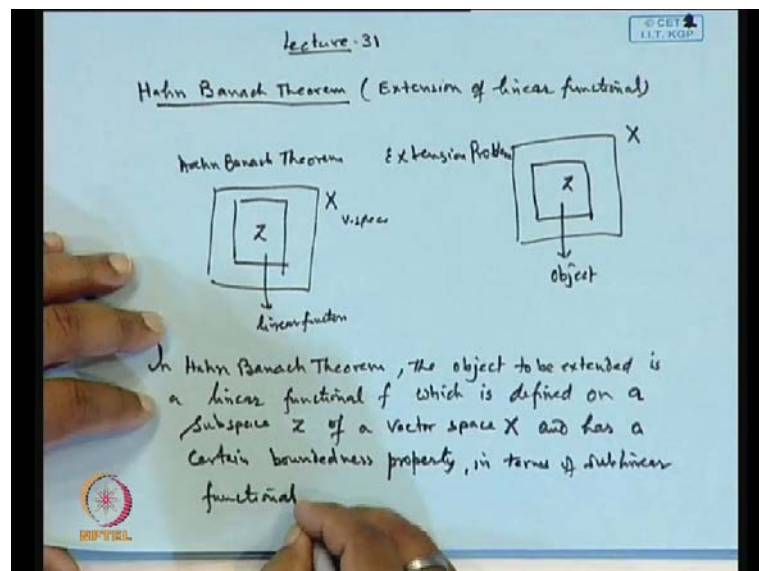 Lecture-31
© CET
I.I.T. KGP
Hahn Banach Theorem (Extension of linear functional)
Hahn Banach Theorem
Extension Problem
X
X
V.space
Z
Z
object
linear function
In Hahn Banach Theorem, the object to be extended is
a linear functional f which is defined on a
subspace Z of a vector space X and has a
certain boundedness property, in terms of sublinear
functional
NPTEL